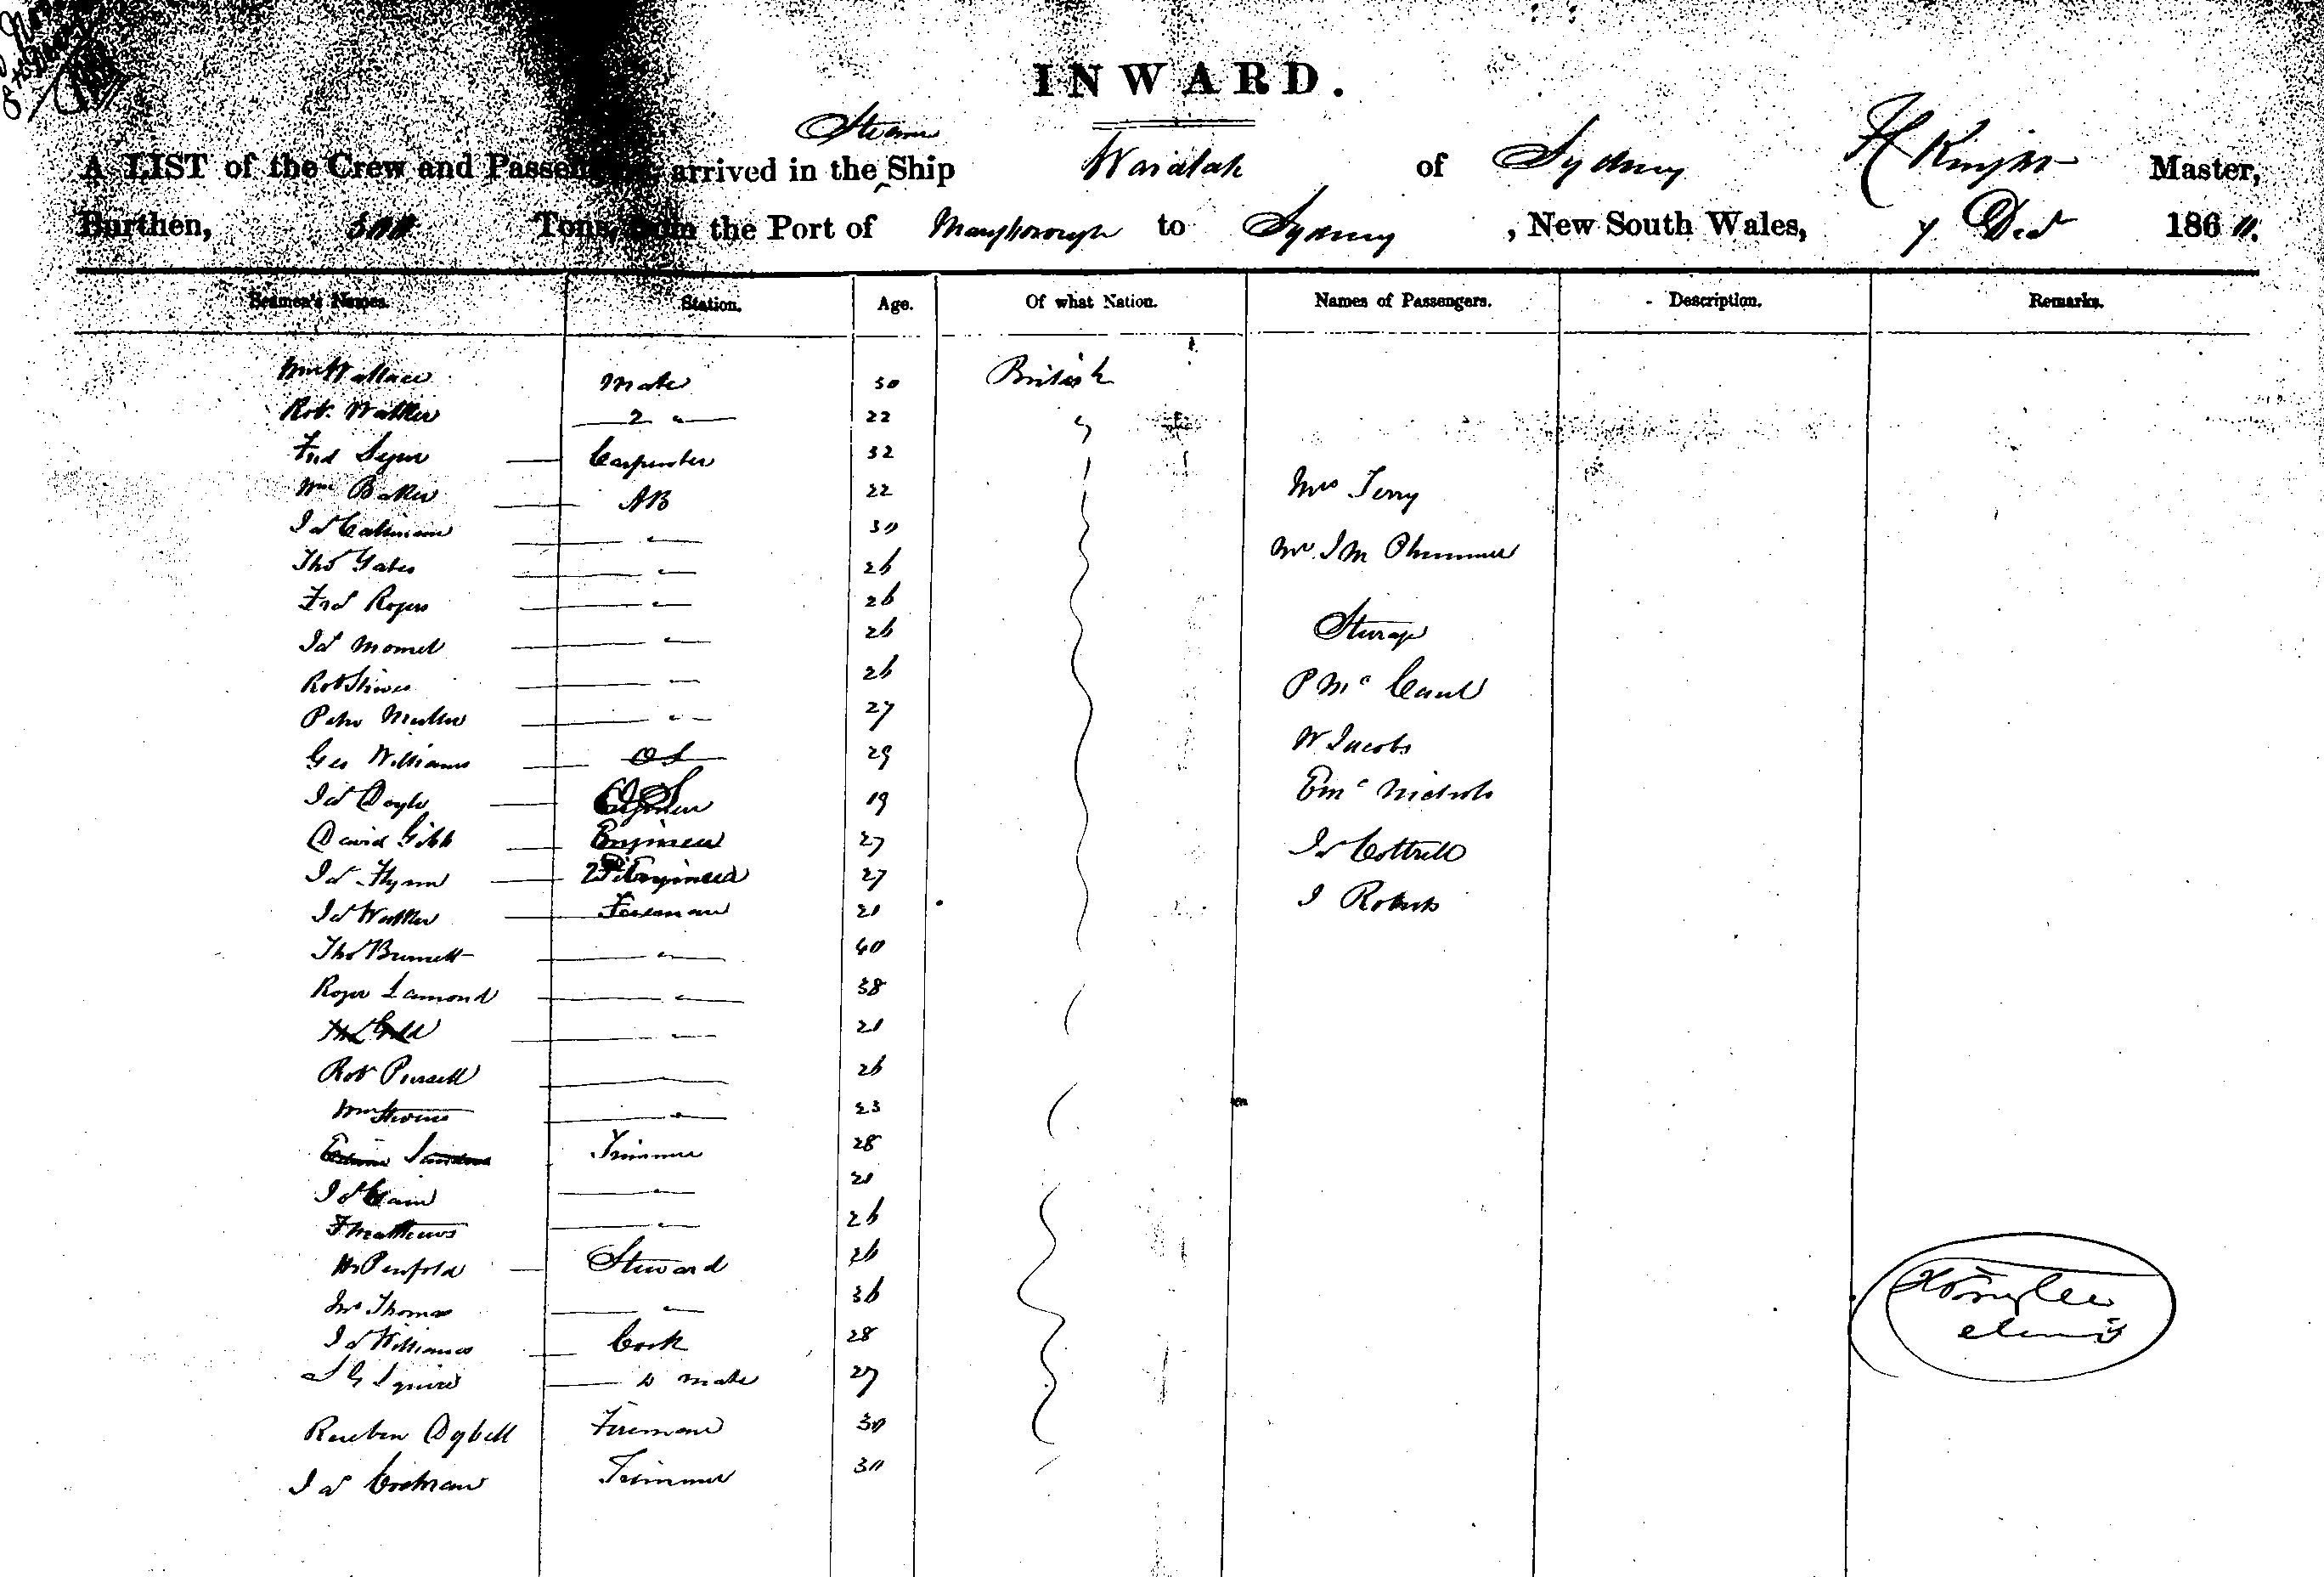 INWARD.
Steam
A LIST of the Crew and Passengers, arrived in the Ship Waratah of Sydney H Knight Master,
Burthen, 300 Tons, from the Port of Maryborough to Sydney, New South Wales, 7 Decr 1860.
Seamen's Names. Station. Age. Of what Nation. Names of Passengers. Description. Remarks.
Wm Wallace Mate 30 British
Robt. Walker 2 " 22 "
Fred Carpenter 32
Wm Baker AB 22 Mrs Terry
Jas 30
Thos Yates " 26 Mr J M Plummer
Fred Rogers " 26
Jas " 26 Steerage
Robt " 26 P Mc Caul
Peter " 27
Geo Williams OS 29 W Jacobs
Jas Doyle OS 19 E Mc Nichols
David Gibb Engineer 27 Jas Cottrell
Jas Flynn 2d Engineer 27
Jas Walker Fireman 20 J Roberts
Thos Burnett " 40
Roger Lamond " 38
" 20
Robt Pursell 26
Wm Stevens " 23
Trimmer 28
Jas Cain " 20
F Matthews " 26
Hy Penfold Steward 26
Jno Thomas " 36
Jas Williams Cook 28
J G Squire " mate 27
Reuben Dybell Fireman 30
Jas Cochran Trimmer 30